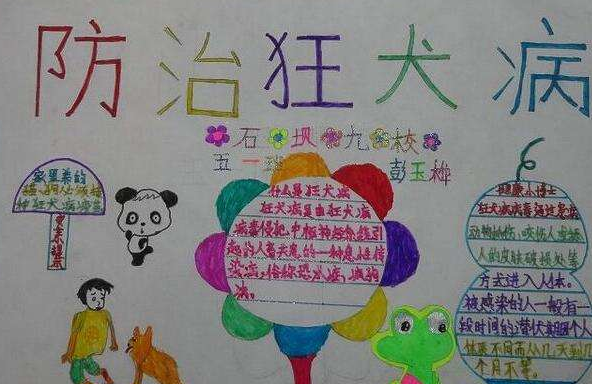 防治狂犬病
石坝九校
五一班 彭玉桦
家里养的
猫、狗人必须接
种狂犬病疫苗
更要提示
什么是狂犬病
狂犬病是由狂犬病
病毒侵犯中枢神经系统引
起的人畜共患的一种急性传
染病，俗称恐水症、疯狗
病。
健康小博士
狂犬病病毒通过患病
动物抓伤、咬伤人或被
人的皮肤破损处等
方式进入人体。
被感染的人一般有一
段时间的潜伏期因个人
体质不同而从几天到几
个月不等。